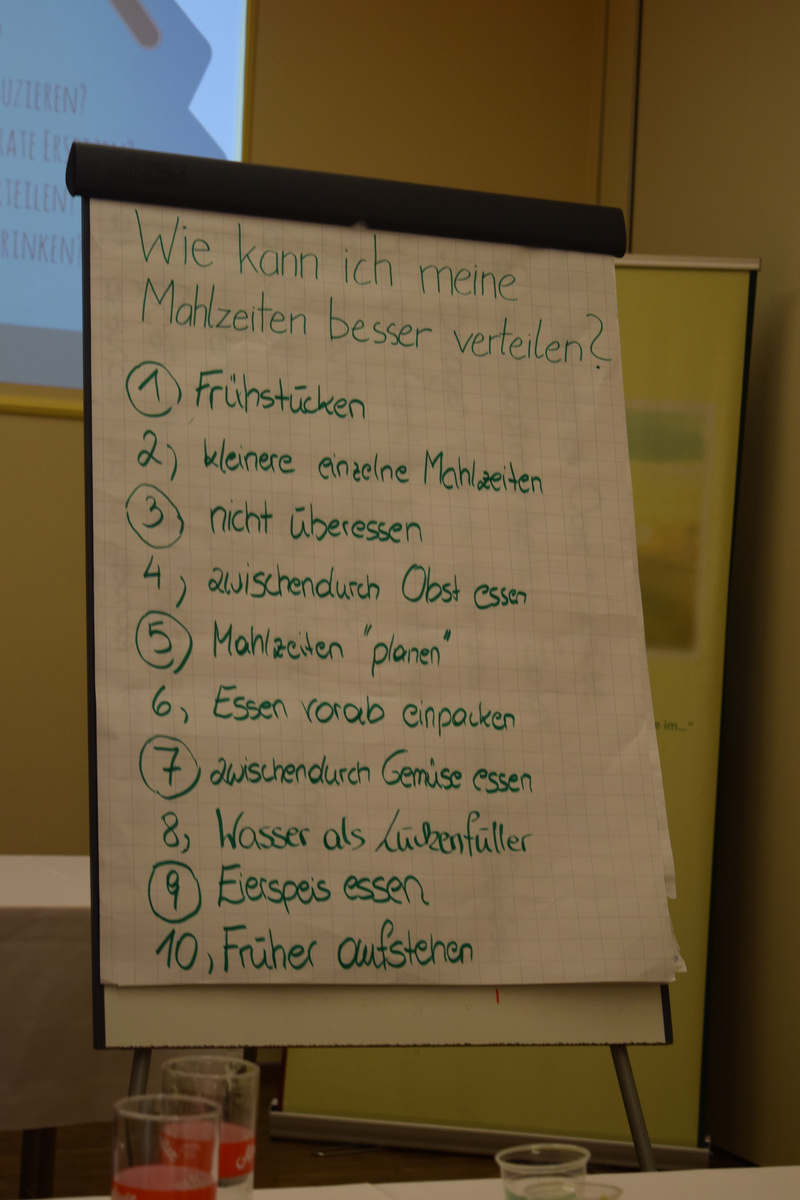 UZIEREN?
TEILEN?
RINKEN?
Wie kann ich meine
Mahlzeiten besser verteilen?
1 Frühstücken
2) kleinere einzelne Mahlzeiten
3 nicht überessen
4, zwischendurch Obst essen
5 Mahlzeiten "planen"
6, Essen vorab einpacken
7 zwischendurch Gemüse essen
8, Wasser als Lückenfüller
9 Eierspeis essen
10, Früher aufstehen
e im..."